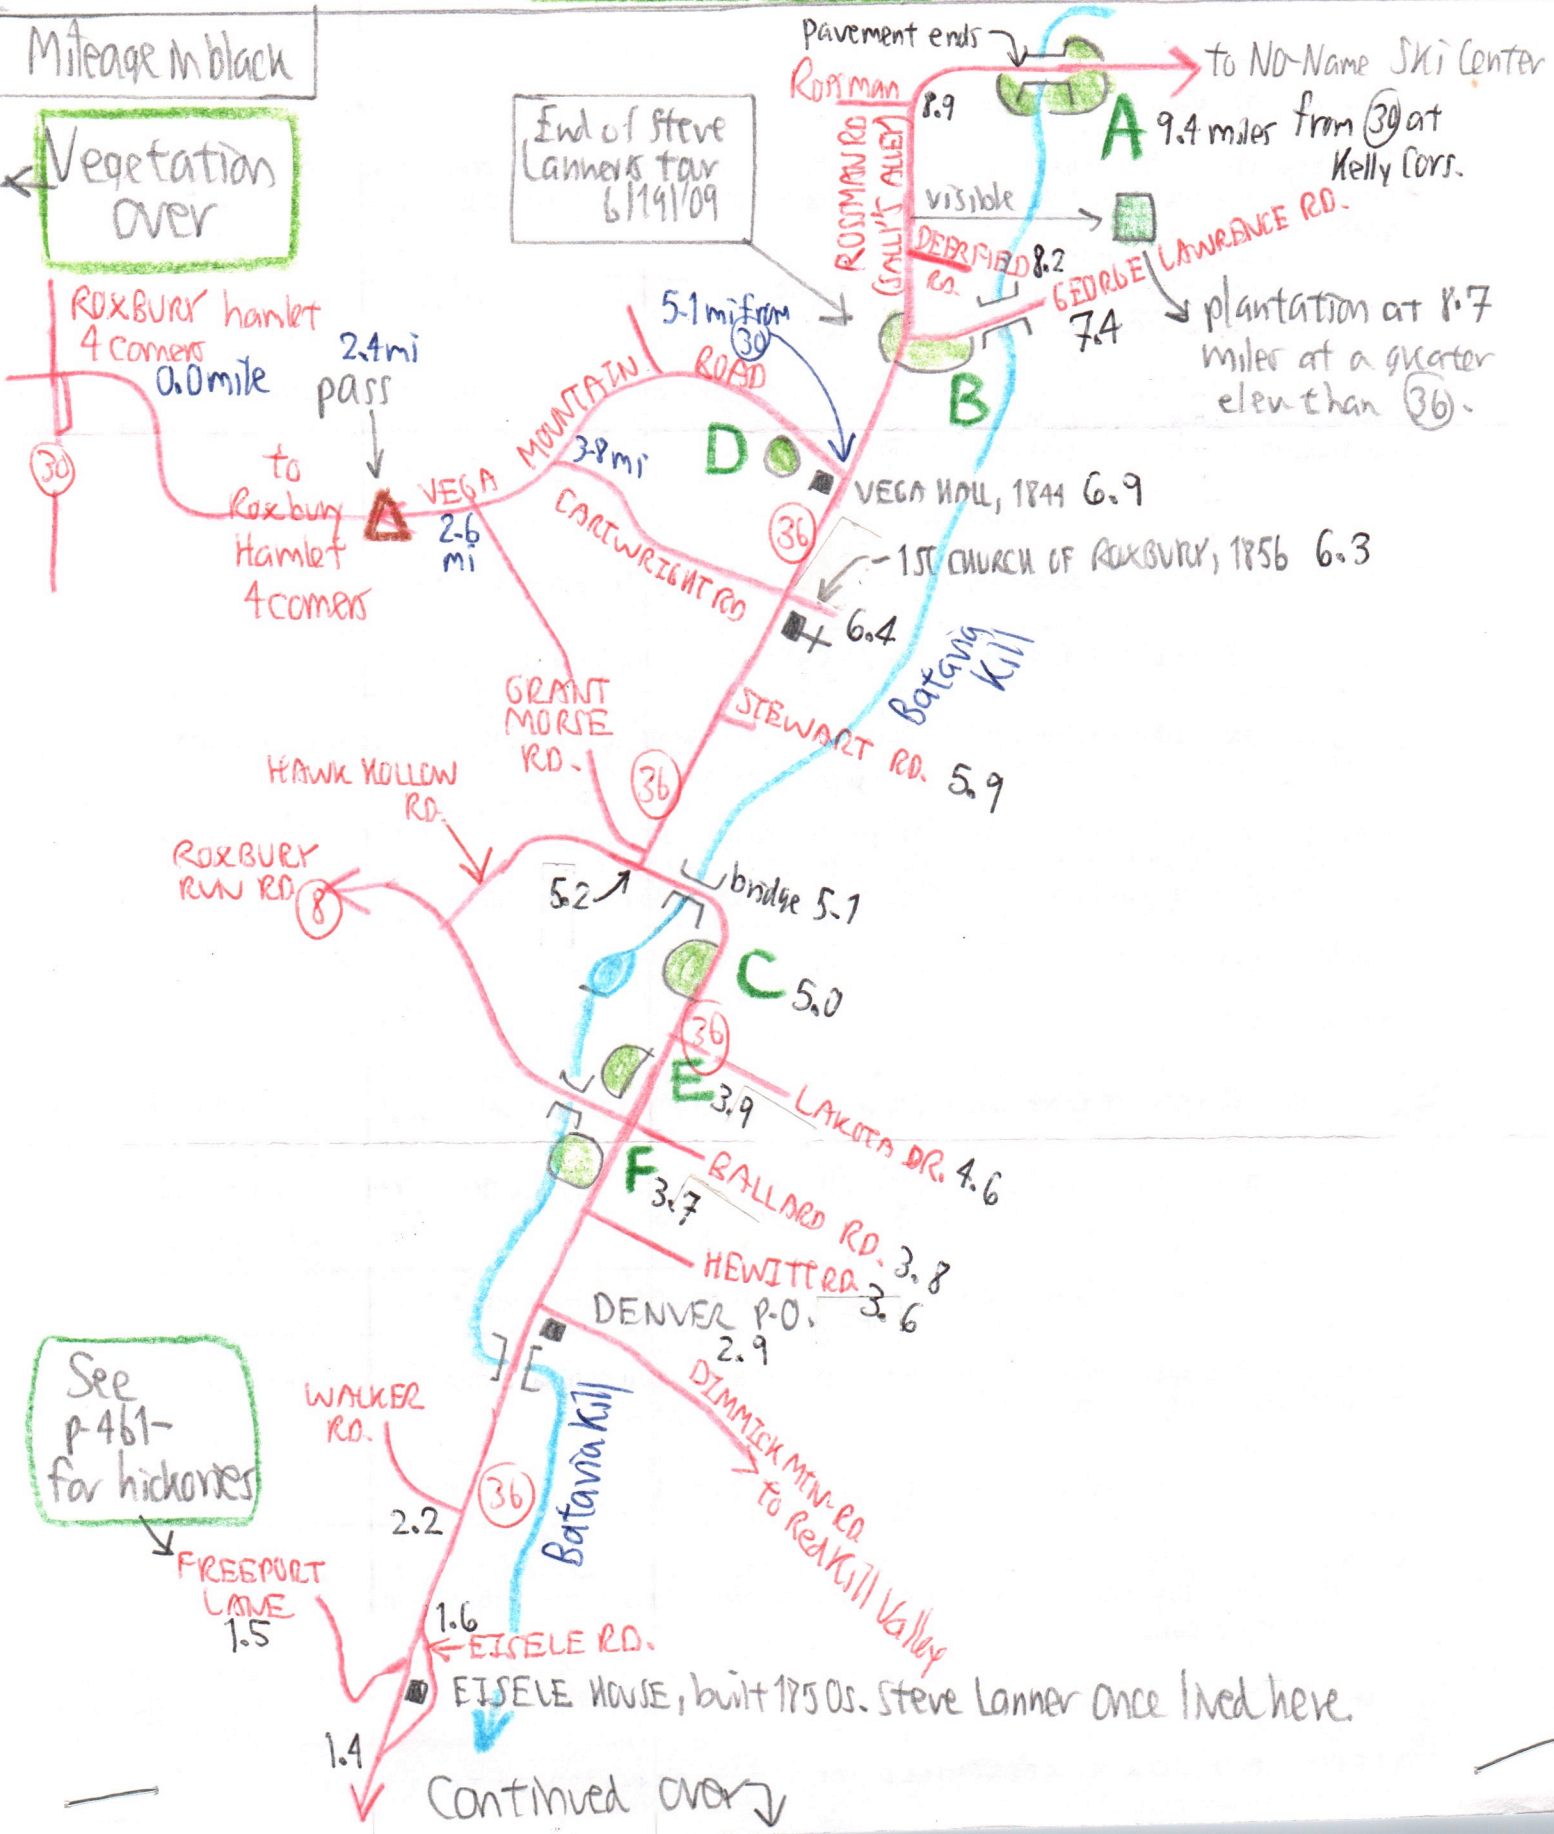 Mileage in black
Vegetation
over
pavement ends
to No-Name Ski Center
Rossman
8.9
A 9.4 miles from 30 at
Kelly Cors.
End of Steve
Lanner's tour
6/19/'09
ROSSMAN RD
(SALLY'S ALLEY)
visible
DEERFIELD 8.2
RD.
GEORGE LAWRENCE RD.
7.4
plantation at 8.7
miles at a greater
elev. than 36.
ROXBURY hamlet
4 corners
0.0 mile
30
2.4 mi
pass
to
Roxbury
Hamlet
4 corners
5.1 mi from
30
VEGA MOUNTAIN ROAD
2.6
mi
3.8 mi
D
B
CARTWRIGHT RD
36
VEGA HALL, 1844 6.9
1ST CHURCH OF ROXBURY, 1856 6.3
6.4
Batavia
Kill
GRANT
MORSE
RD.
STEWART RD. 5.9
36
HAWK HOLLOW
RD.
ROXBURY
RUN RD.
8
5.2
bridge 5.1
C 5.0
36
E 3.9
LAKOTA DR. 4.6
F 3.7
BALLARD RD. 3.8
HEWITT RD. 3.6
DENVER P.O.
2.9
DIMMICK MTN. RD.
to Red Kill Valley
See
p. 461-
for hickories
WALKER
RD.
36
2.2
Batavia Kill
FREEPORT
LANE
1.5
1.6
EISELE RD.
EISELE HOUSE, built 1750s. Steve Lanner once lived here.
1.4
Continued over